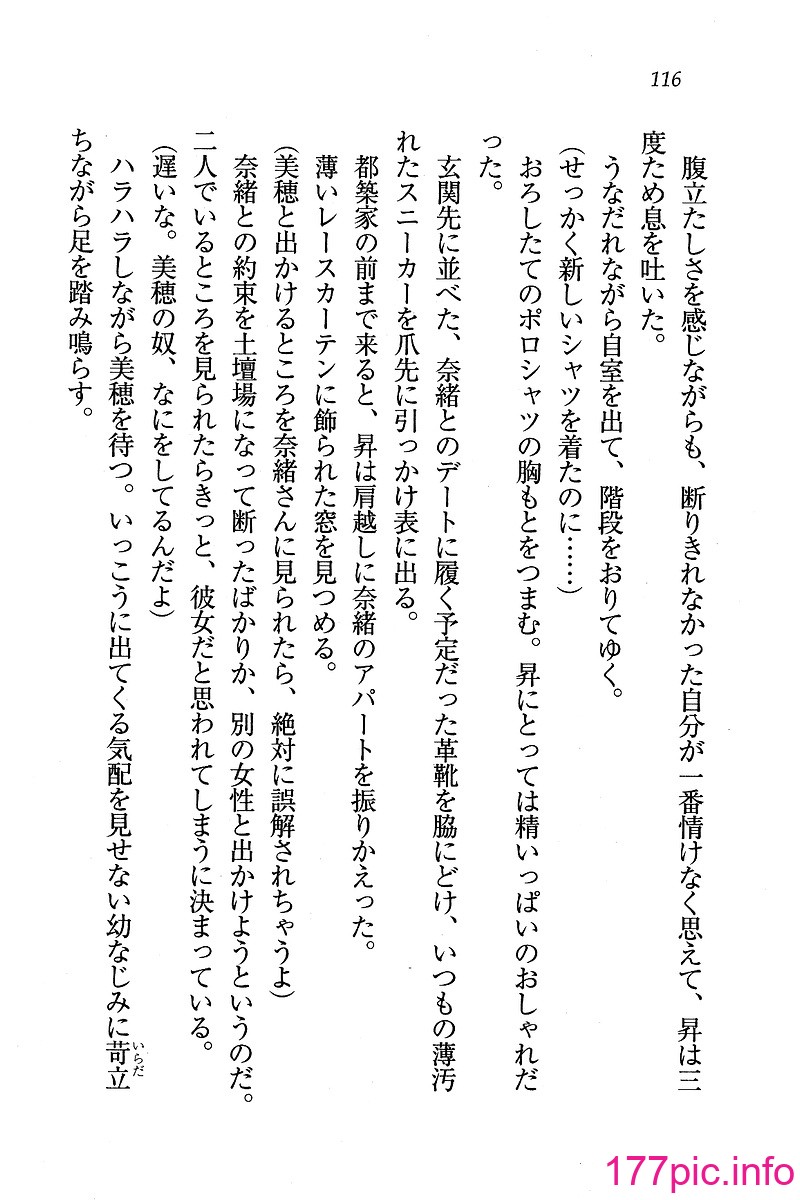 116
腹立たしさを感じながらも、断りきれなかった自分が一番情けなく思えて、昇は三
度ため息を吐いた。
うなだれながら自室を出て、階段をおりてゆく。
(せっかく新しいシャツを着たのに……)
おろしたてのポロシャツの胸もとをつまむ。昇にとっては精いっぱいのおしゃれだ
った。
玄関先に並べた、奈緒とのデートに履く予定だった革靴を脇にどけ、いつもの薄汚
れたスニーカーを爪先に引っかけ表に出る。
都築家の前まで来ると、昇は肩越しに奈緒のアパートを振りかえった。
薄いレースカーテンに飾られた窓を見つめる。
(美穂と出かけるところを奈緒さんに見られたら、絶対に誤解されちゃうよ)
奈緒との約束を土壇場になって断ったばかりか、別の女性と出かけようというのだ。
二人でいるところを見られたらきっと、彼女だと思われてしまうに決まっている。
(遅いな。美穂の奴、なにをしてるんだよ)
ハラハラしながら美穂を待つ。いっこうに出てくる気配を見せない幼なじみに苛立
いらだ
ちながら足を踏み鳴らす。
177pic.info